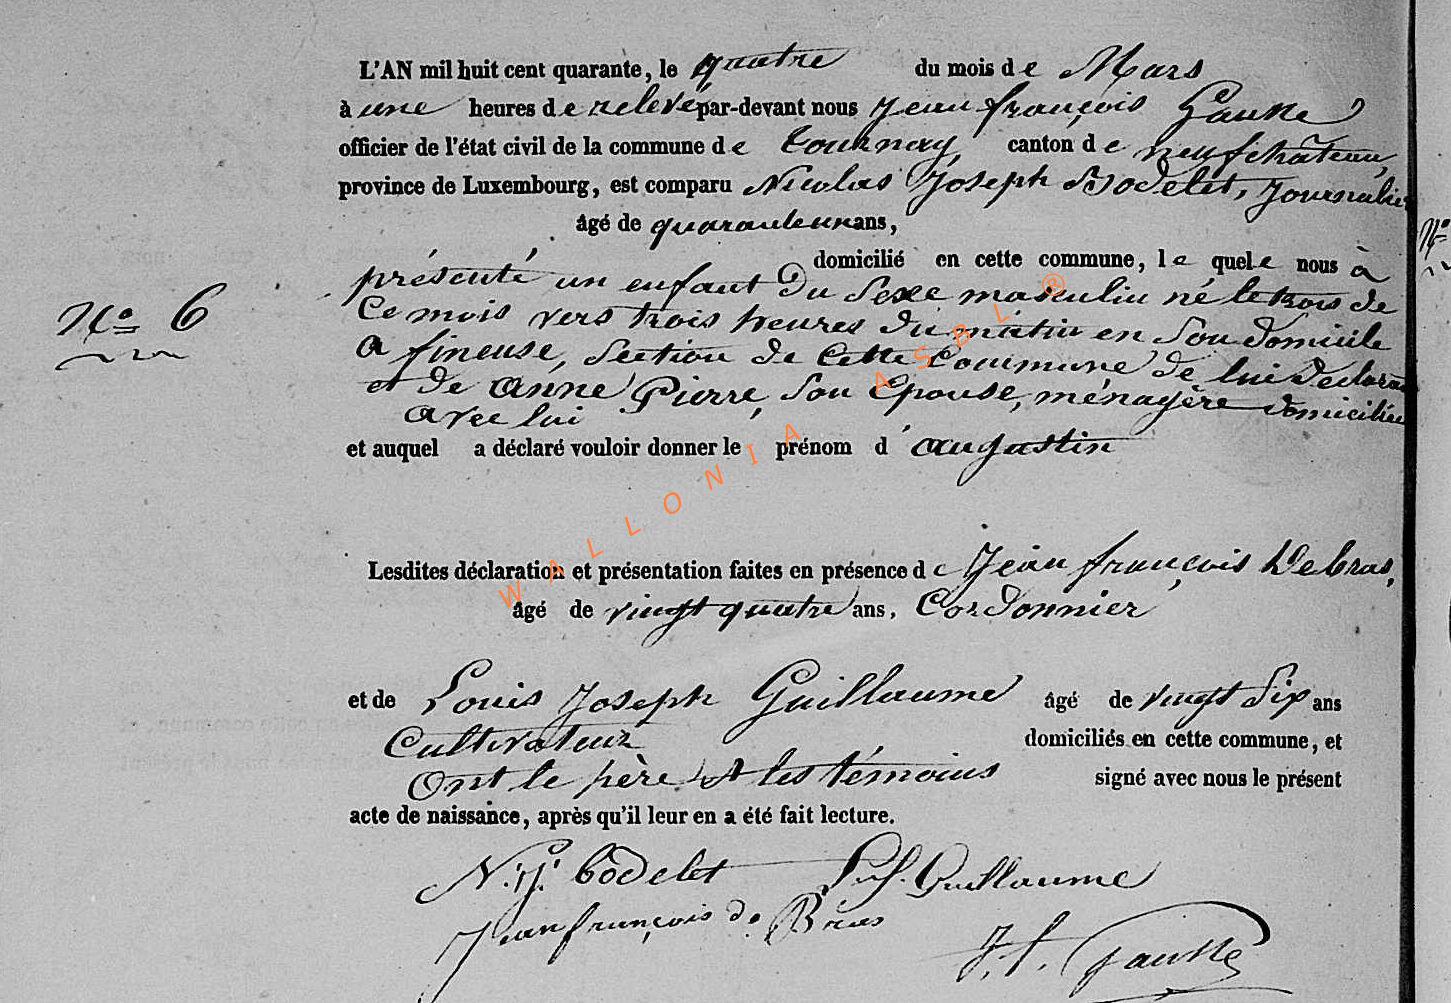 L'AN mil huit cent quarante, le quatre du mois de Mars
à une heures de relevé par-devant nous Jean françois Gausse
officier de l'état civil de la commune de tournay canton de neufchâteau,
province de Luxembourg, est comparu Nicolas Joseph Bodelet, Journalier
âgé de quarante un ans,
domicilié en cette commune, le quel nous à
présenté un enfant du Sexe masculin né le trois de
Nº 6
Ce mois vers trois heures du matin en Son domicile
a fineuse, Section de Cette Commune de lui déclarant
et de Anne Pierre, Son Epouse, ménagère domiciliée
avec lui
et auquel a déclaré vouloir donner le prénom d'augustin
WALLONIA ASBL ®
Lesdites déclaration et présentation faites en présence de Jean françois Debras,
âgé de vingt quatre ans, Cordonnier
et de Louis Joseph Guillaume âgé de vingt Six ans
Cultivateur domiciliés en cette commune, et
Ont le père et les témoins signé avec nous le présent
acte de naissance, après qu'il leur en a été fait lecture.
N. J. bodelet Guillaume
Jean françois de Bras
J. f. Gausse